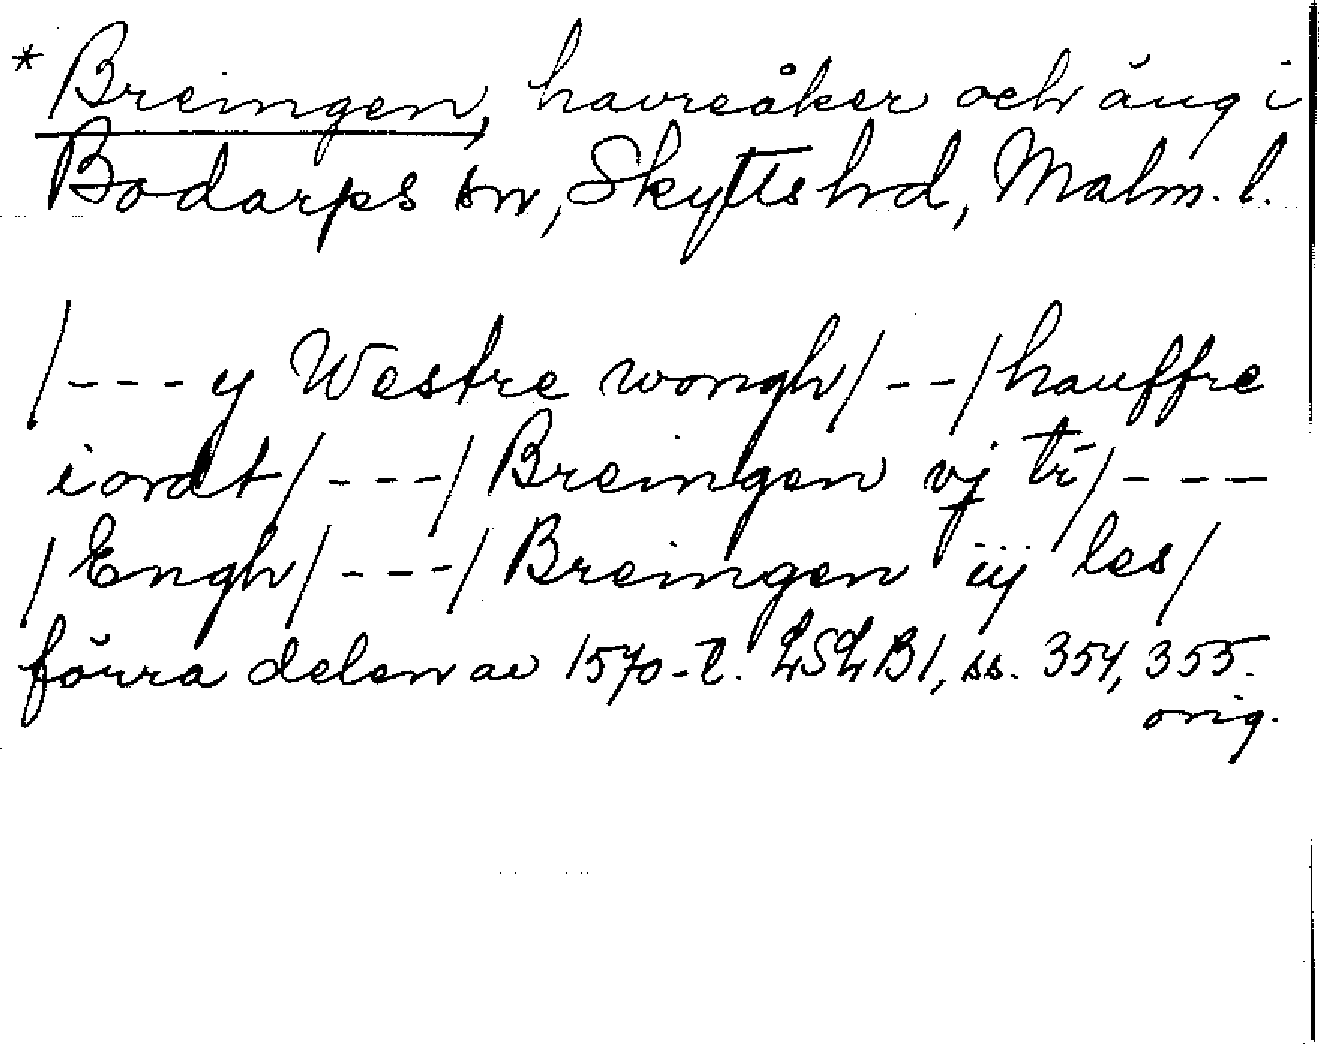 * Breingen, havreåker och äng i
Bodarps sn, Skytts hd, Malm. l.
/---y Westre wongh/--/hauffre
iordt/---/Breingen vj tr/---
/Engh/---/Breingen iij les/
förra delen av 1570-t. LSLB1, ss. 354, 355.
orig.